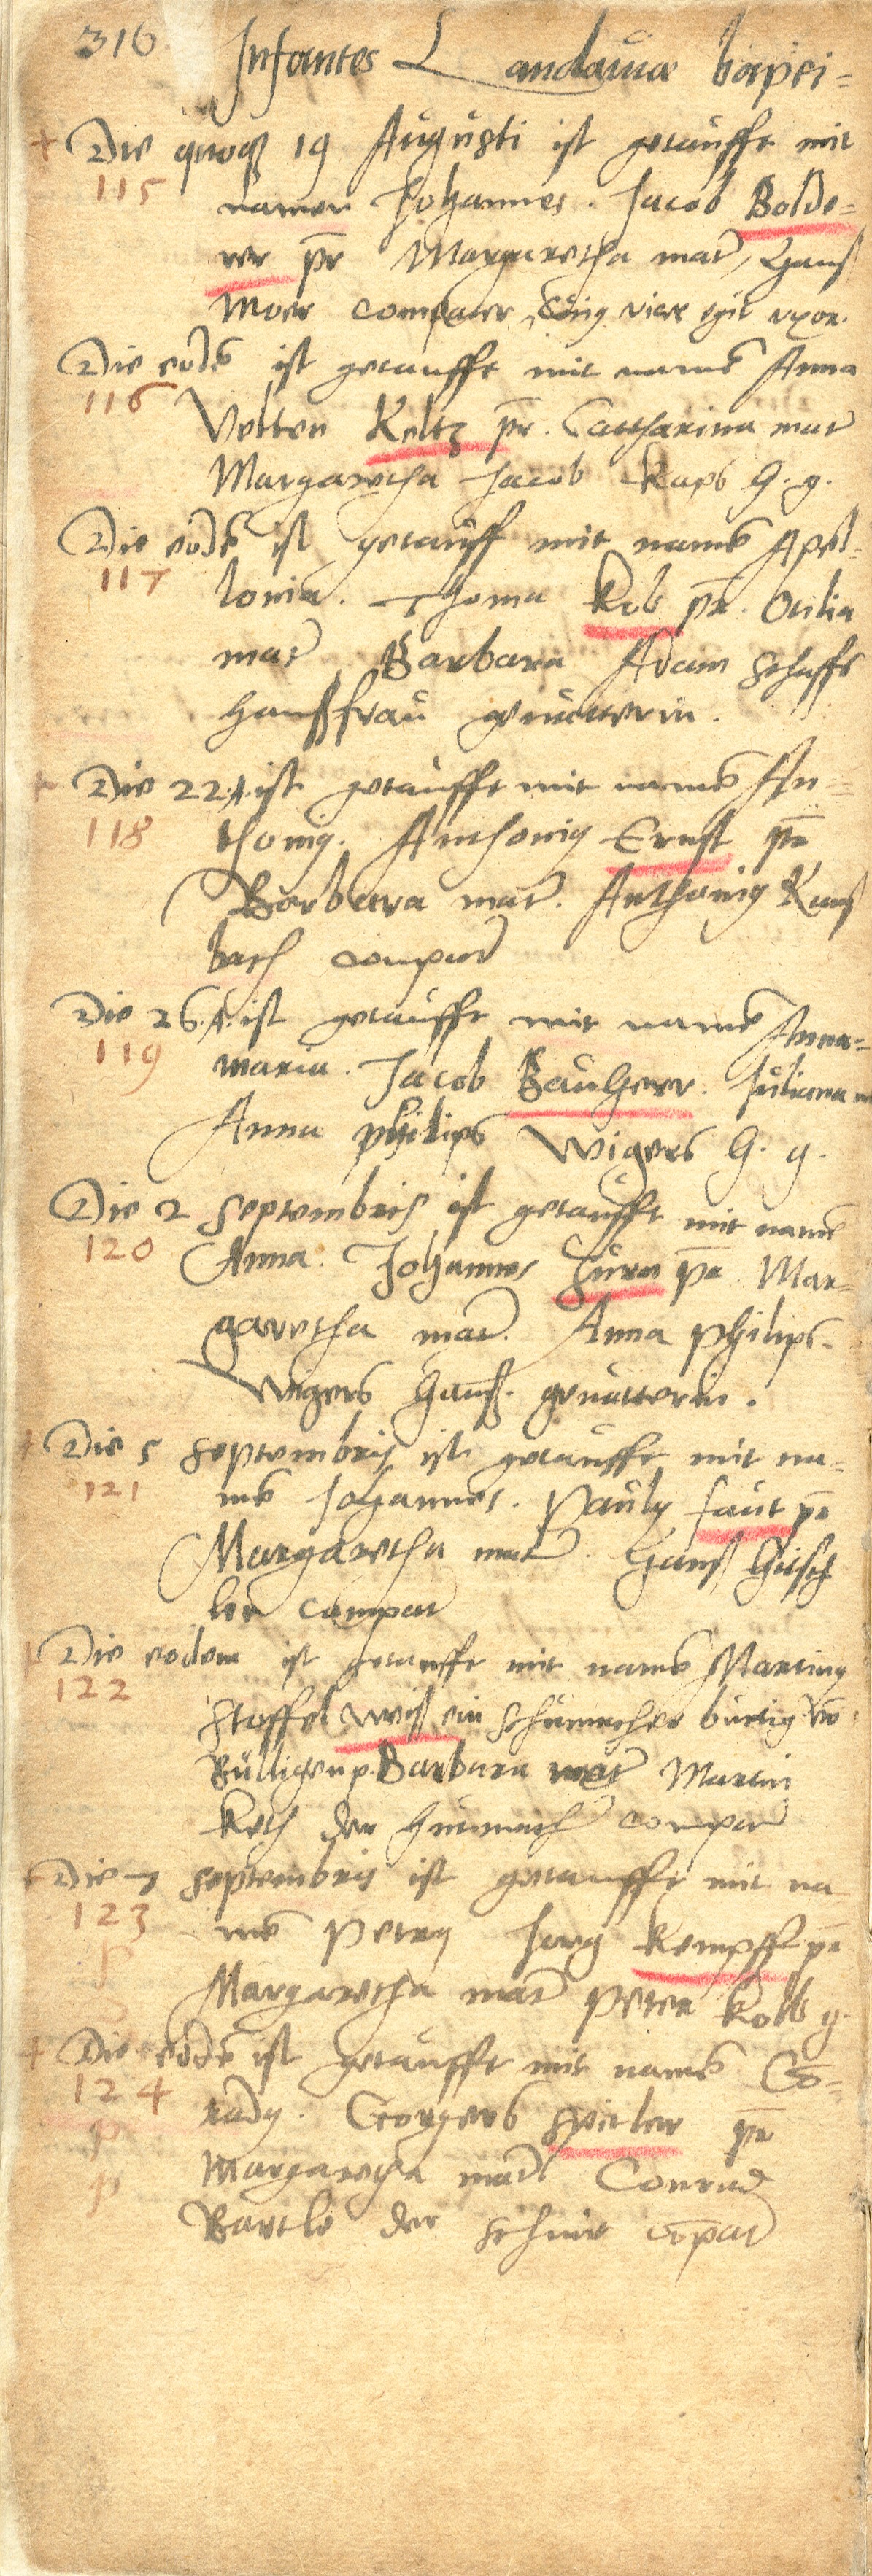 316 Infantes Landauiæ bapti=
+ Die quoq 19 Augusti ist getaufft mit
115 namen Johannes. Jacob Bolde=
rer pr Margaretha mat, Hans
Moer compater, cuig vice egit uxor.
Die eodē ist getaufft mit namē Anna
116 Velten Keltz pr. Catharina mat
Margaretha Jacob Kaps h. g.
Die eodē ist getauff mit namē Apol=
117 lonia. Thoma Kob pr. Otilia
mat Barbara Adam Schaffs
Hausfrau geuatterin.
+ Die 22. A. ist getaufft mit namē An=
118 thonig. Anthonig Ernst pr
Barbara mat. Anthonig Kans
bach compat
Die 26. A. ist getaufft mit namē Anna=
119 maria. Jacob Bauherr. Juliana m
Anna Philips Wigers h. g.
Die 2 Septembris ist getaufft mit namē
120 Anna. Johannes Juru pr. Mar=
garetha mat. Anna Philips
Wigers Hausf. geuatterin.
+ Die 5 Septembris ist getaufft mit na=
121 mē Johannes. Pauly faut pr
Margaretha mat. Hans
ler compat
+ Die eodem ist getaufft mit namē Marting
122 Stoffel Weiß ein schumacher burtig vō
Bulligen p. Barbara mat Martin
Koch der hutmach compat
+ Die 7 Septembris ist getaufft mit na
123 mē Petrg Jorg Kempff pr
p Margaretha mat Peter Kolb g.
+ Die eodē ist getaufft mit namē Cō=
124 radg. Georgers Spitler pr
p Margaretha mat Conrad
p Bartle der schmit cōpat